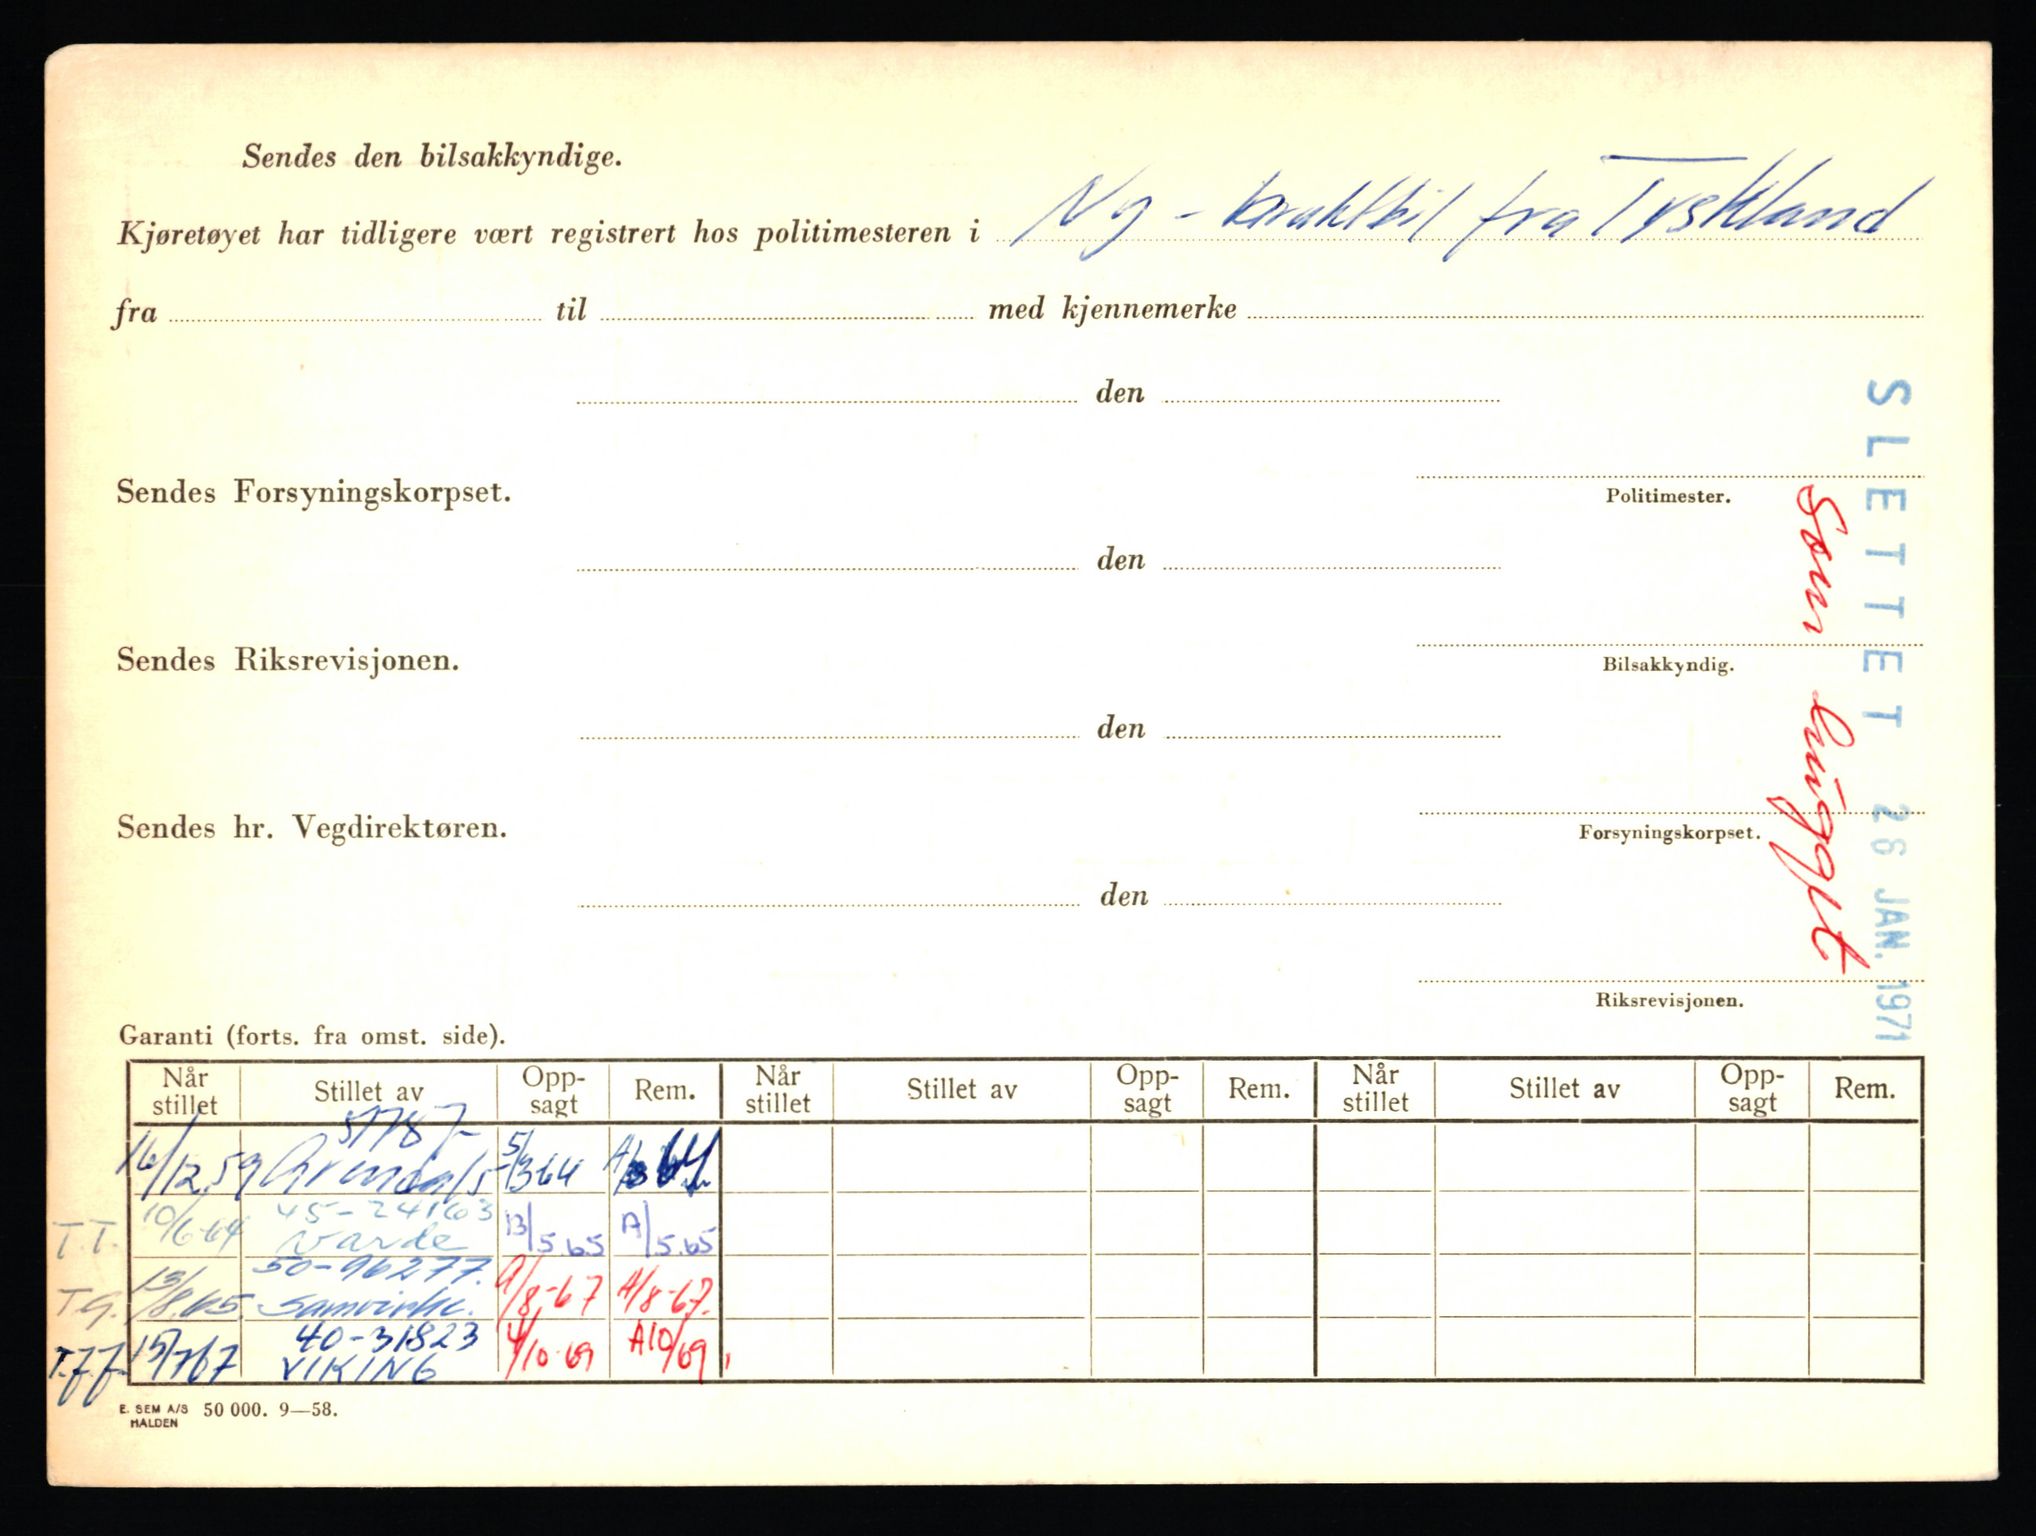 Sendes den bilsakkyndige.
Kjøretøyet har tidligere vært registrert hos politimesteren i Ny - bruktbil fra Tyskland
fra til med kjennemerke
den
Politimester.
Sendes Forsyningskorpset.
den
Bilsakkyndig.
Sendes Riksrevisjonen.
den
Forsyningskorpset.
Sendes hr. Vegdirektøren.
den
Riksrevisjonen.
SLETTET 26 JAN. 1971
Som hugget
Garanti (forts. fra omst. side).
Når stillet Stillet av Opp-sagt Rem. Når stillet Stillet av Opp-sagt Rem. Når stillet Stillet av Opp-sagt Rem.
51787
16/12.59 Arendals 5/3 64
45-24163
T.T. 10/6-64 Varde 13/5.65 A/5.65
50-96277.
T.G. 13/8.65 Samvirke. 9/8-67 A/8-67.
40-31823
T.F.F. 15/7 67 VIKING 4/10-69 A10/69
E. SEM A/S HALDEN 50 000. 9—58.